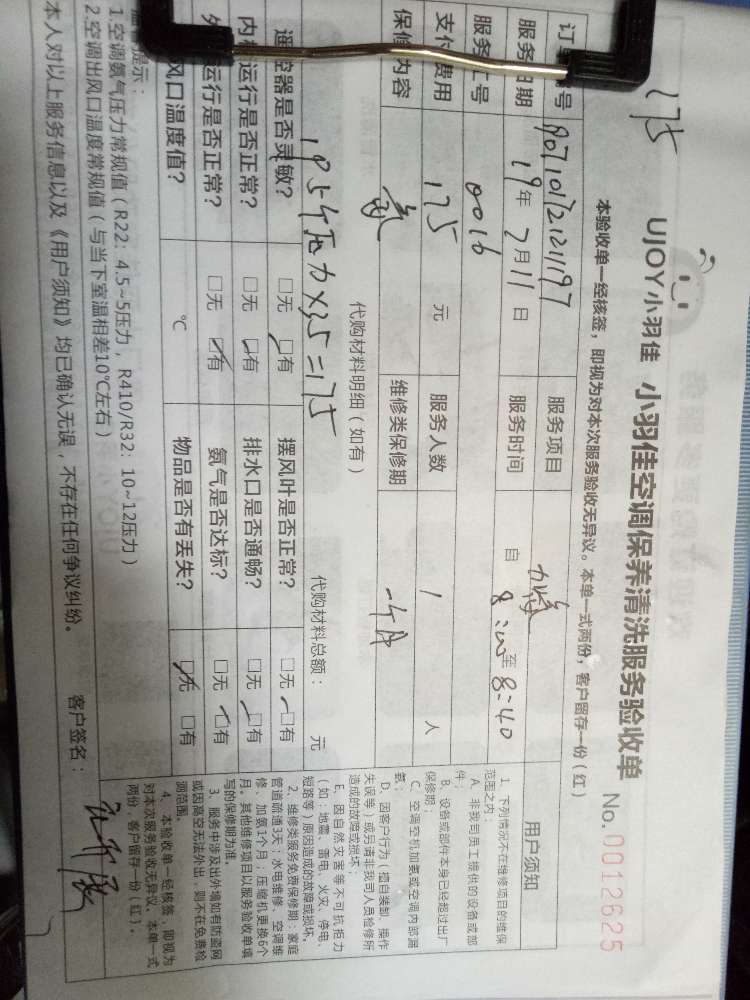 175
UJOY小羽佳 小羽佳空调保养清洗服务验收单 No.0012625
本验收单一经核签，即视为对本次服务验收无异议。本单一式两份，客户留存一份（红）
服务项目 加氨
服务日期 19年 7月11日 服务时间 自 8:00至8:40
0016
支付费用 175 元 服务人数 1 人
保修内容 氨 维修类保修期 一个月
代购材料明细（如有） 代购材料总额： 元
5个压力×35=175
遥控器是否灵敏？ □无 □有 摆风叶是否正常？ □无 □有
内机运行是否正常？ □无 □有 排水口是否通畅？ □无 □有
运行是否正常？ □无 □有 氨气是否达标？ □无 □有
风口温度值？ ℃ 物品是否有丢失？ □无 □有
提示：
1.空调氨气压力常规值（R22：4.5~5压力，R410/R32：10~12压力）
2.空调出风口温度常规值（与当下室温相差10℃左右）
本人对以上服务信息以及《用户须知》均已确认无误，不存在任何争议纠纷。 客户签名：
用户须知
1、下列情况不在维修项目的维保
范围之内：
A、非我司员工提供的设备或部
件；
B、设备或部件本身已经超过出厂
保修期；
C、空调空机加氨或空调内部漏
氨；
D、因客户行为（擅自装卸、操作
失误等）或另请非我司人员检修所
造成的故障或损坏；
E、因自然灾害等不可抗拒力
（如：地震、雷电、火灾、停电、
短路等）原因造成的故障或损坏。
2、维修类服务免费保修期：家庭
管道疏通3天；水电维修、空调维
修、加氨1个月；压缩机更换6个
月。其他维修项目以服务验收单填
写的保修期为准。
3、服务中涉及出外墙如有防盗网
或因高空无法外出，则不在免费检
调范围。
4、本验收单一经核签，即视为
对本次服务验收无异议。本单一式
两份，客户留存一份（红）。